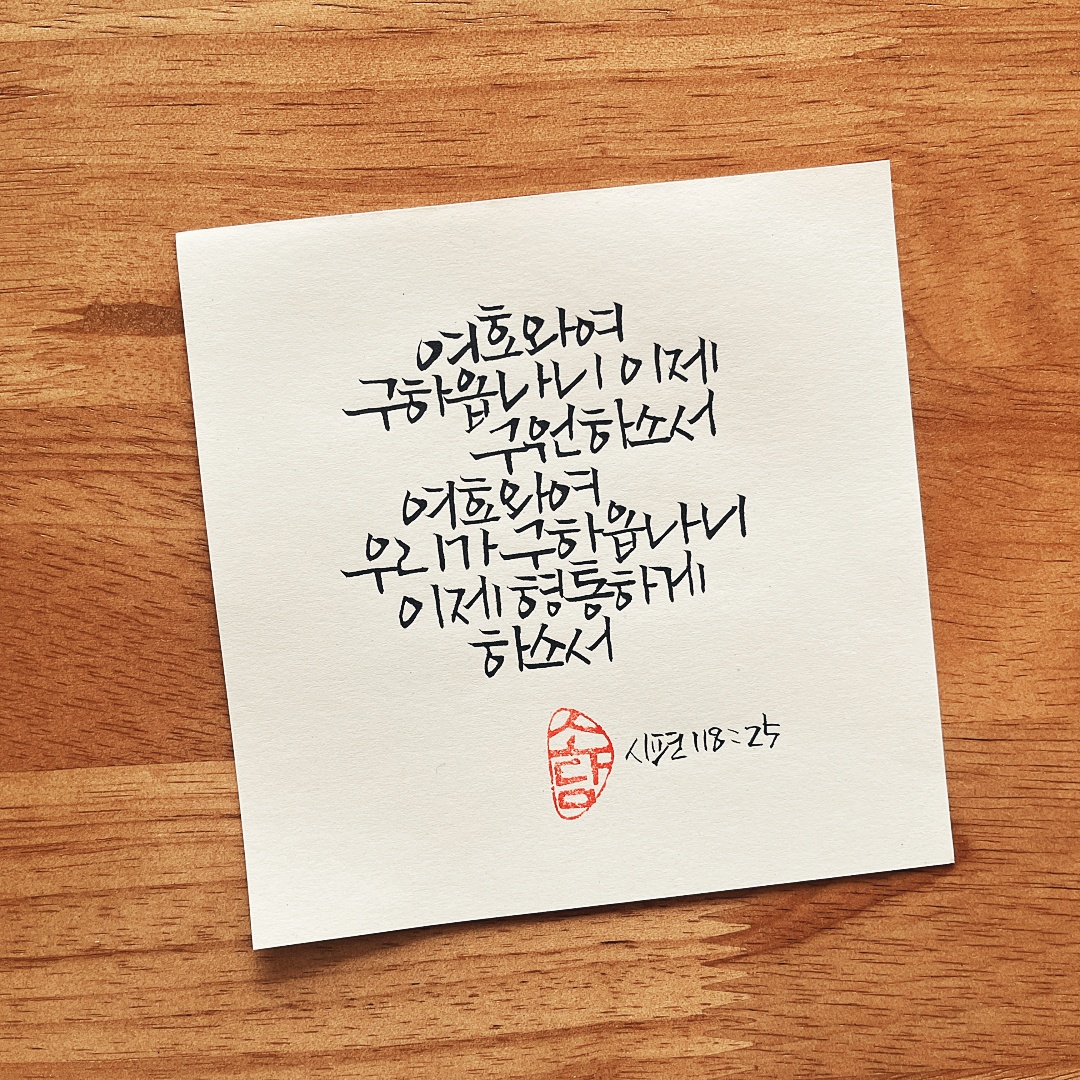 여호와여
구하옵나니 이제
구원하소서
여호와여
우리가 구하옵나니
이제 형통하게
하소서
소담
시편 118:25